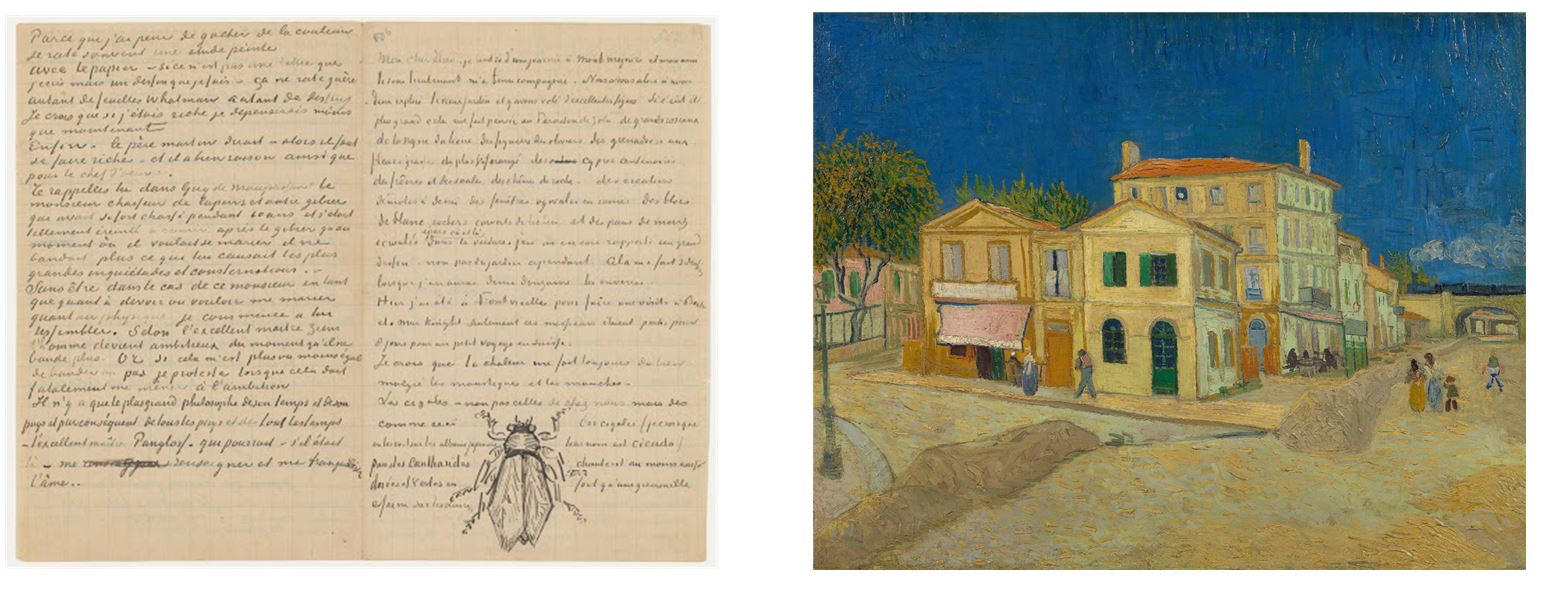 Parce que j'ai peur de gacher de la couleur
je rate souvent une etude peinte
avec le papier – si ce n'est pas une lettre que
j'ecris mais un dessin que je fais – ça ne rate guère
autant de feuilles Whatman autant de dessins
Je crois que si j'étais riche je depenserais moins
que maintenant
Enfin – le père martin dirait – alors il faut
se faire riche – et il a bien raison ainsi que
pour le chef d'oeuvre.
Te rappelles tu dans Guy de maupassant le
monsieur chasseur de lapins et autre gibier
qui avait si fort chassé pendant 10 ans et s'était
tellement éreinté à courir après le gibier qu'au
moment où il voulait se marier il ne
bandait plus ce qui lui causait les plus
grandes inquiétudes et consternations. –
Sans être dans le cas de ce monsieur en tant
que quant à devoir ou vouloir me marier
quant au physique je commence à lui
ressembler. Selon l'excellent maitre Ziem
l'homme devient ambitieux du moment qu'il ne
bande plus. Or si cela m'est plus ou moins égal
de bander ou pas je proteste lorsque cela doit
fatalement me mener à l'ambition
Il n'y a que le plus grand philosophe de son temps et de son
pays et par conséquent de tous les pays et de tout les temps
– l'excellent maitre Pangloss – qui pourrait – s'il était
là – me renseigner et me tranquiliser
l'âme..
Mon cher Theo, je rentre d'une journée à Mont major et mon ami
le sous lieutenant m'a tenu compagnie. Nous avons alors à nous
deux exploré le vieux jardin et y avons volé d'excellentes figues. Si c'eut été
plus grand cela eut fait penser au Paradou de Zola de grands roseaux
de la vigne du lierre des figuiers des oliviers des grenadiers aux
fleurs grasses du plus vif orangé des cyprès centenaires
des frênes et des saules des chênes de roche. des escaliers
démolis à demi des fenêtres ogivales en ruines des blocs
de blanc rocher couverts de lichen et des pans de murs
ecroulés épars çà et là dans la verdure; j'en ai encore rapporté un grand
dessin. non pas du jardin cependant. Cela me fait 3 dessins
lorsque j'en aurai demi douzaine les enverrai.
Hier j'ai été à Fontvieilles pour faire une visite à Bock
et à Mac Knight seulement ces messieurs étaient partis pour
8 jours pour un petit voyage en Suisse.
Je crois que la chaleur me fait toujours du bien
malgré les moustiques et les mouches.
Les cigales – non pas celles de chez nous mais des
comme ceci
on les voit sur les albums japonais
pas des Cantharides
dorées et vertes en
essaim sur les oliviers
Ces cigales /je crois que
leur nom est cicada/
chantent au moins aussi
fort qu'une grenouille